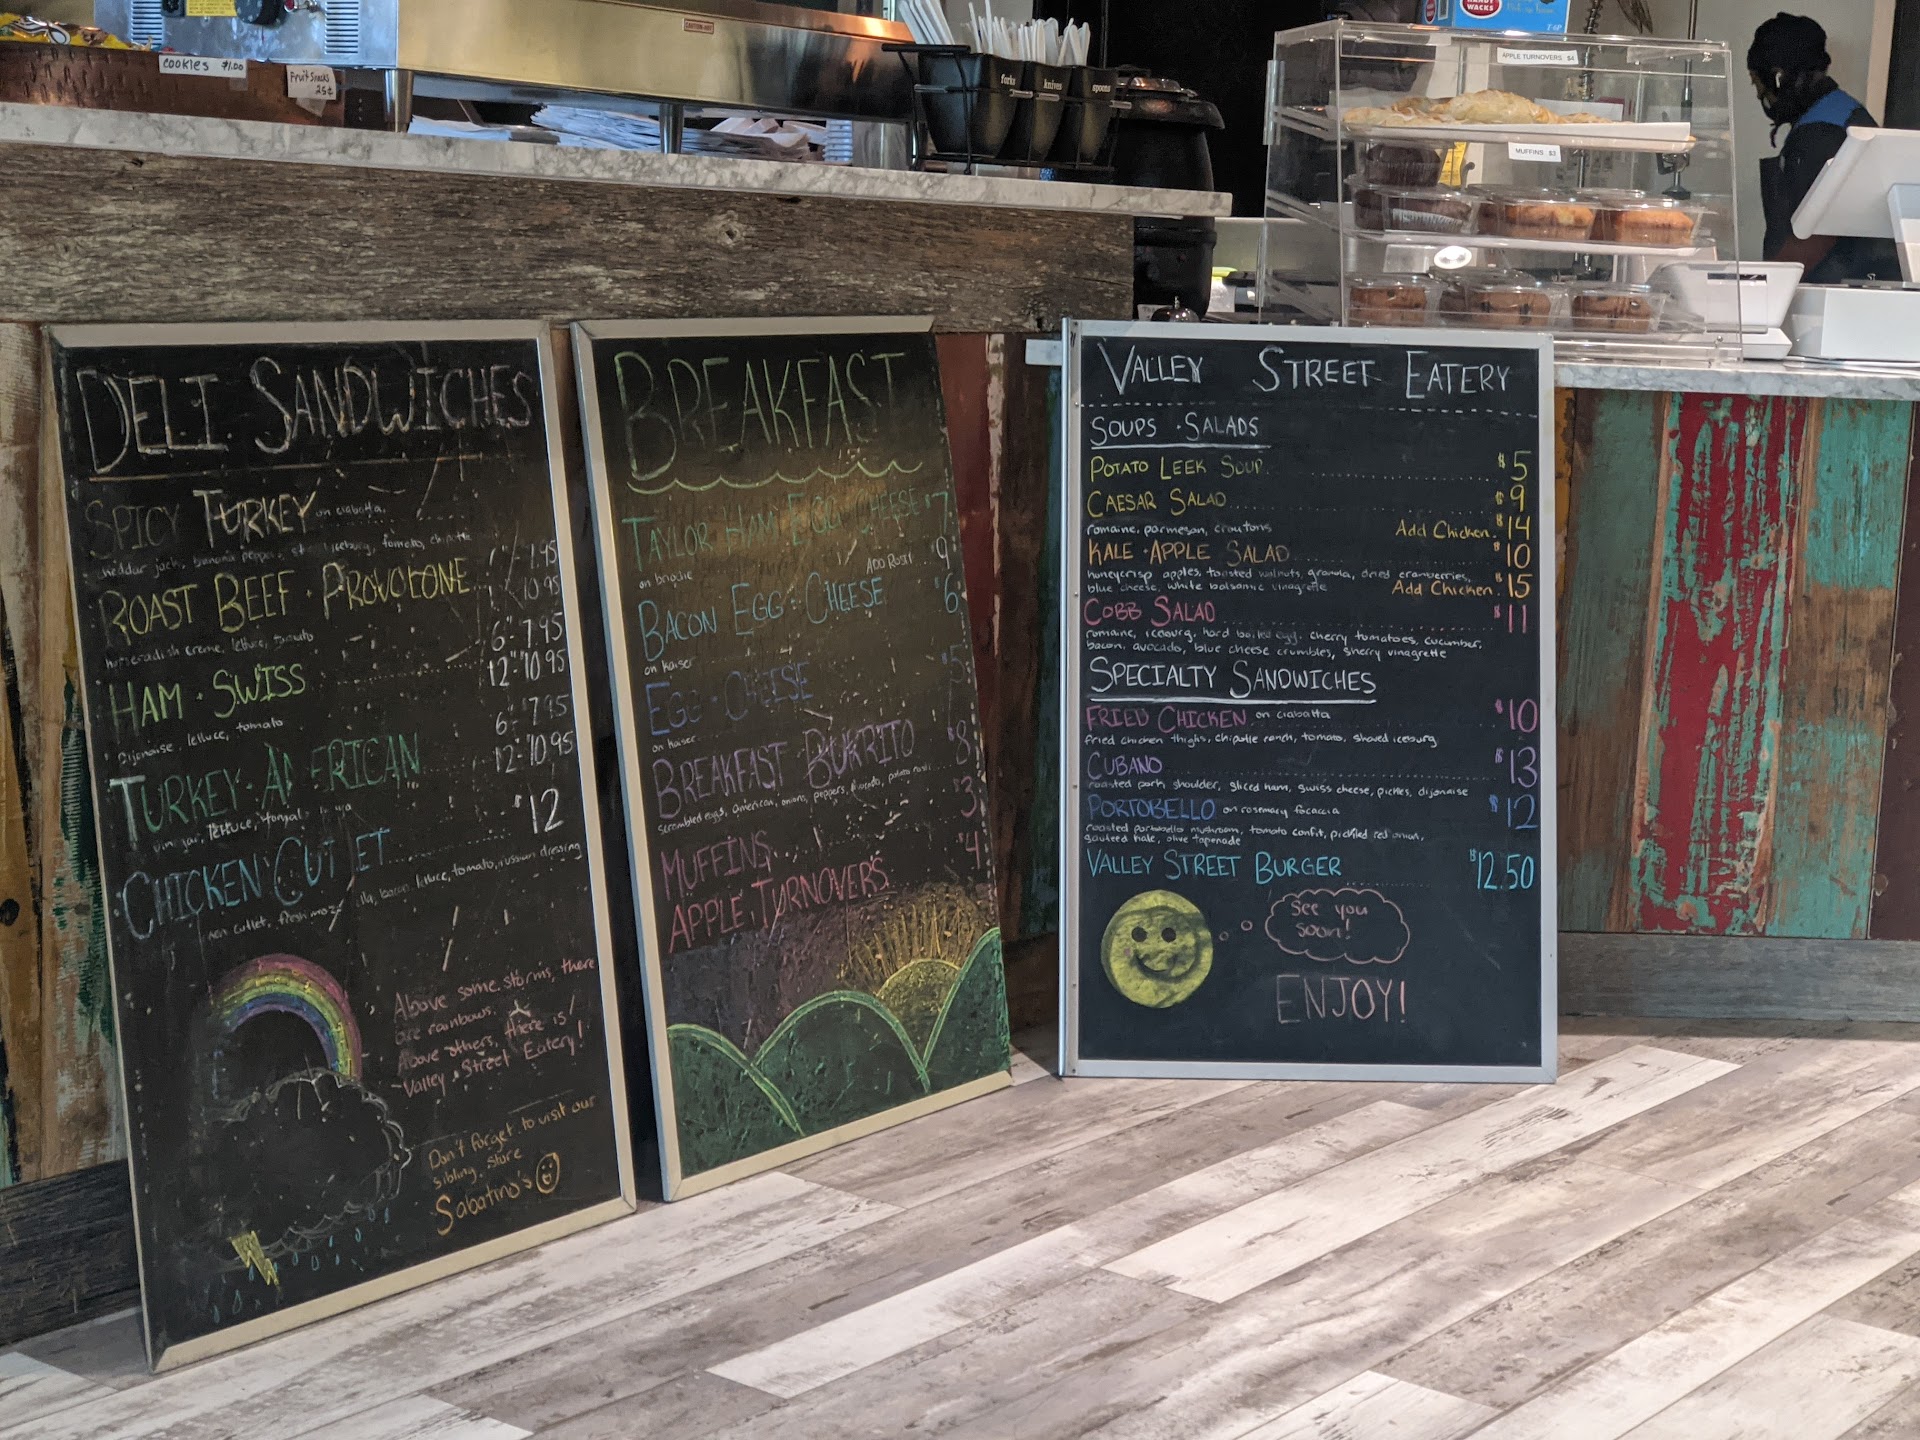 CAUTION-HOT
cookies $1.00
Fruit Snacks
25¢
forks
knives
spoons
APPLE TURNOVERS $4
MUFFINS $3
DELI SANDWICHES
SPICY TURKEY on ciabatta
cheddar jack, banana peppers, iceburg, tomato, chipotle
7.95
ROAST BEEF · PROVOLONE
10.95
horseradish creme, lettuce, tomato
6"-7.95
HAM · SWISS
12"-10.95
dijonaise, lettuce, tomato
6"-7.95
TURKEY·
12"-10.95
vinegar, lettuce,
CHICKEN CUTLET $12
cutlet, fresh bacon, lettuce, tomato, russian dressing
Above some storms, there
are rainbows,
Above others, there is
Valley Street Eatery!
Don't forget to visit our
sibling store
Sabatino's
BREAKFAST
TAYLOR HAM EGG CHEESE $7
on brioche
ADD ROSTI 9
BACON EGG · CHEESE $6
on kaiser
EGG · CHEESE $5
on kaiser
BREAKFAST BURRITO $8
scrambled eggs, american, onions, peppers, avocado, potato rosti
MUFFINS $3
APPLE TURNOVERS $4
VALLEY STREET EATERY
SOUPS · SALADS
POTATO LEEK SOUP $5
CAESAR SALAD $9
romaine, parmesan, croutons Add Chicken. $14
KALE · APPLE SALAD $10
honeycrisp apples, toasted walnuts, granola, dried cranberries,
blue cheese, white balsamic vinagrette Add Chicken. $15
COBB SALAD $11
romaine, iceburg, hard boiled egg, cherry tomatoes, cucumber,
bacon, avocado, blue cheese crumbles, sherry vinagrette
SPECIALTY SANDWICHES
FRIED CHICKEN on ciabatta $10
fried chicken thighs, chipotle ranch, tomato, shaved iceburg
CUBANO $13
roasted pork shoulder, sliced ham, swiss cheese, pickles, dijonaise
PORTOBELLO on rosemary focaccia $12
roasted portobello mushroom, tomato confit, pickled red onion,
sauteed kale, olive tapenade
VALLEY STREET BURGER $12.50
See you
soon!
ENJOY!